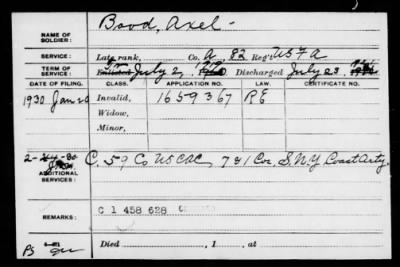 NAME OF SOLDIER: Bood, Axel -
SERVICE: Late rank, Co. A, 82 Reg't US F A
TERM OF SERVICE: Enlisted July 2, Discharged July 23,
DATE OF FILING. CLASS. APPLICATION NO. LAW. CERTIFICATE NO.
1930 Jan 20 Invalid, 1659367 RE
Widow,
Minor,
C. 59 Co USCAC 781 Co., S.N.Y Coast Arty
ADDITIONAL SERVICES:
REMARKS: C 1 458 628
Died , 1 , at